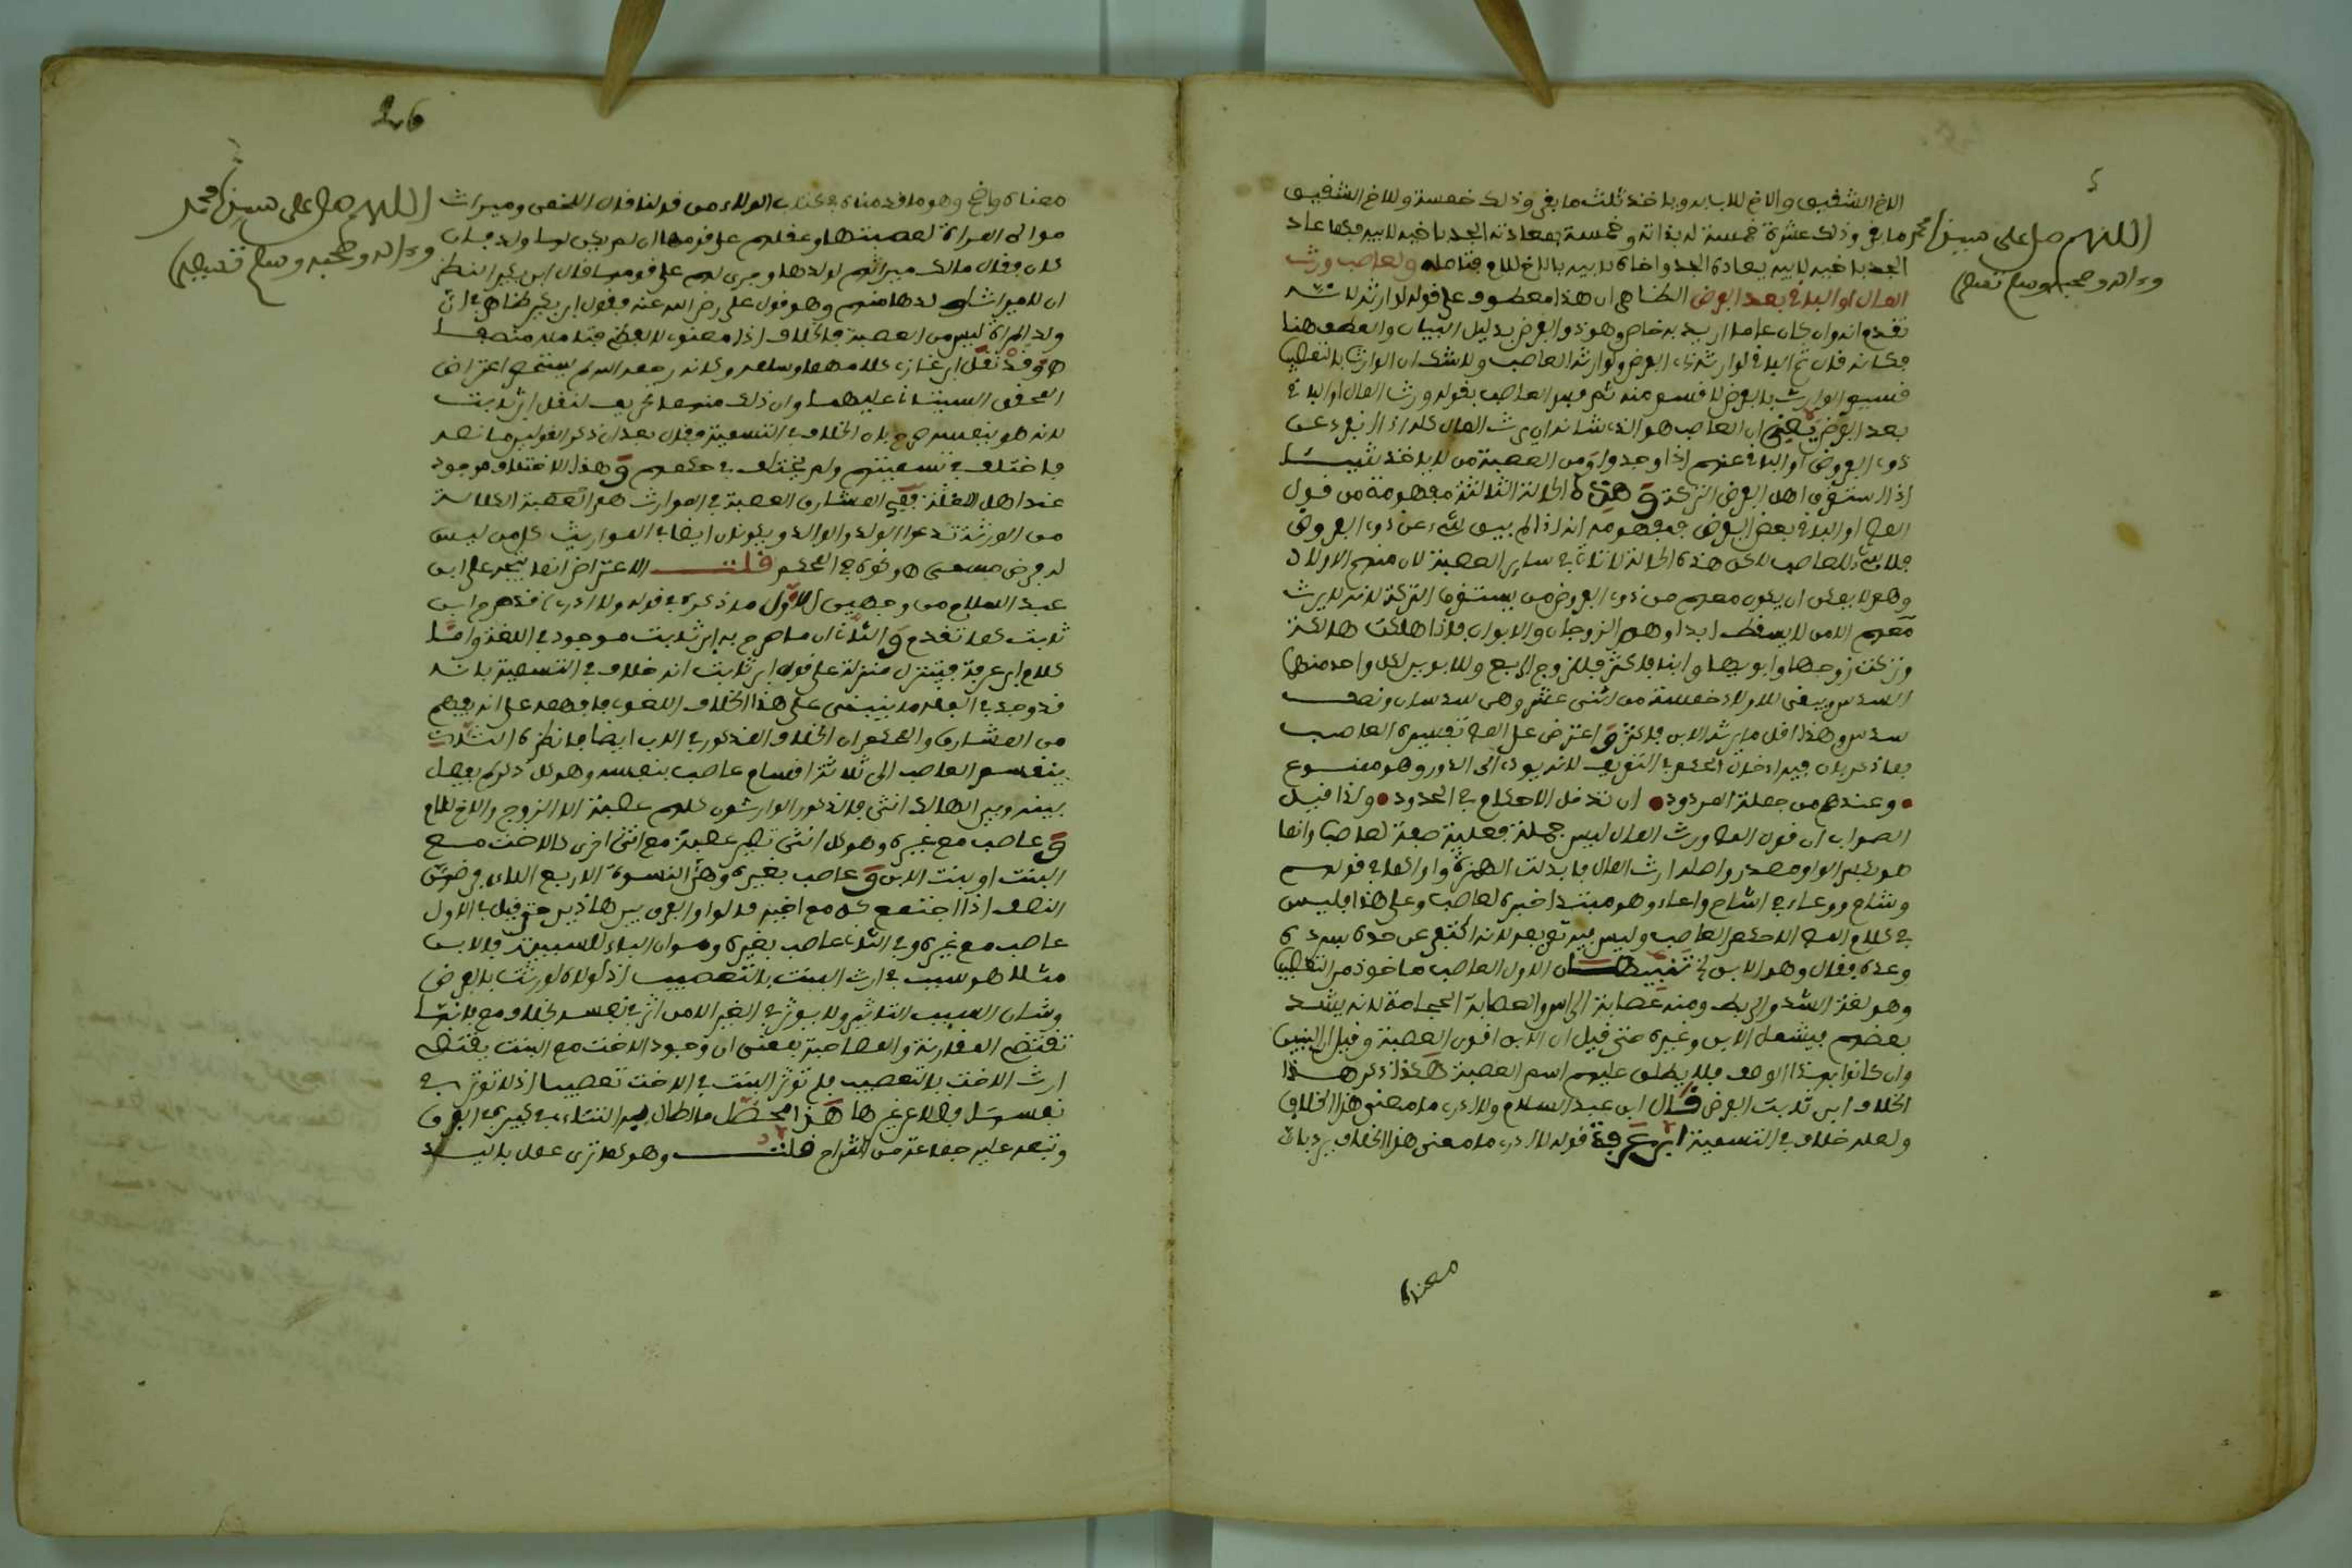 الاخ الشقيق والاخ للاب له وياخذ ثلث ما بقي وذلك خمسة وللاخ الشقيق
ما بقي وذلك عشرة خمسة له بذاته وخمسة بمعادته الجد باخيه لابيه فكما عاد
الجد باخيه لابيه يعاد الجد واخاه لابيه بالاخ للام فتامله ولعاصب ورث
المال او الباقي بعد الفرض الظاهر ان هذا معطوف على قوله لوارثه لانه
تقدم انه وان كان عاما اريد به خاص وهو ذو الفرض بدليل البيان والعطف هنا
فكانه قال ثم الباقي لوارثه ذي الفرض ولوارثه العاصب ولا شك ان الوارث بالتعصيب
قسيم الوارث بالفرض لا قسم منه ثم فسر العاصب بقوله ورث المال او الباقي
بعد الفرض يعني ان العاصب هو الذي شانه ان يرث المال كله اذا انفرد عن
ذوي الفروض او الباقي عنهم اذا وجدوا ومن العصبة من لا ياخذ شيئا
اذا استغرق اهل الفرض التركة وهذه الحالة الثالثة مفهومة من قول
المص او الباقي بعد الفرض فمفهومه انه اذا لم يبق شيء عن ذوي الفروض
فلا شيء للعاصب لكن هذه الحالة لا تاتي في ساير العصبة لان منهم الاولاد
وهم لا يمكن ان يكون معهم من ذوي الفروض من يستغرق التركة لانه لا يرث
معهم الا من لا يسقط ابدا وهم الزوجان والابوان فاذا هلكت هالكة
وتركت زوجها وابويها وابنا فاكثر فللزوج الربع وللابوين لكل واحد منهما
السدس ويبقى للاولاد خمسة من اثنى عشر وهي سدسان ونصف
سدس وهذا اقل ما يرثه الابن فاكثر واعترض على المص تفسيره العاصب
بما ذكر بان فيه ادخال الحكم في التعريف لانه يودي الى الدور وهو ممنوع
وعندهم من جملة المردود ان تدخل الاحكام في الحدود ولذا قيل
الصواب ان قول المص ورث المال ليس جملة فعلية صفة لعاصب وانما
هو بكسر الواو مصدر واصله ارث المال فابدلت الهمزة واوا كما في قولهم
وشاح ووعاء في اشاح واعاء وهو مبتدا خبره لعاصب وعلى هذا فليس
في كلام المص الا حكم العاصب وليس فيه تعريفه لانه اكتفى عن حده بسرده
وعده فقال وهو الابن الخ تنبيهان الاول العاصب ماخوذ من التعصيب
وهو لغة الشد والربط ومنه عصابة الراس والعصابة العمامة لانه يشد
بعضهم فيشمل الابن وغيره حتى قيل ان الابن اقوى العصبة وقيل ان البنين
وان كانوا بهذا الوصف فلا يطلق عليهم اسم العصبة هكذا ذكر هذا
الخلاف ابن ثابت الفرضي قال ابن عبد السلام ولا ادري ما معنى هذا الخلاف
ولعله خلاف في التسمية ابن عرفة قوله لا ادري ما معنى هذا الخلاف يرد بان
معناه
اللهم صل على سيدنا محمد
وءاله وصحبه وسلم تسليما
26
معناه واضح وهو ما قدمناه في كتاب الولاء من قولنا قال اللخمي وميراث
موالي المراة لعصبتها وعقلهم على قومها ان لم يكن لها ولد فان
كان فقال مالك ميراثهم لولدها وجرى لهم على قومها قال ابن بكير النظر
ان لا ميراث لولدها منهم وهو قول علي رضي الله عنه فقول ابن بكير ظاهر في ان
ولد المراة ليس من العصبة فالخلاف اذا معنوي لا لفظي فتامله منصفا
هـ وقد نقل ابن غازي كلامهما وسلمه وكانه رحمه الله لم يستحضر اعتراض
المحقق السيتاني عليهما وان ذلك منهما تحريف لنقل ابن ثابت
لانه هو بنفسه صرح بان الخلاف في التسمية فقال بعد ان ذكر القولين ما نصه
فاختلف في تسميتهم ولم يختلف في حكمهم وهذا الاختلاف موجود
عند اهل اللغة ففي المشارق العصبة في الموارث هم العصبة الكلالة
من الورثة ما عدا الولد والوالد ويكون ايضا في المواريث كل من ليس
له فرض مسمى هـ ونحوه في المحكم قلت الاعتراض انما يتجه على ابن
عبد السلام من وجهين الاول ما ذكره في قوله ولا ادري فقد صرح ابن
ثابت كما تقدم والثاني ان ما صرح به ابن ثابت موجود في اللغة واما
كلام ابن عرفة فيتنزل منزلة على قول ابن ثابت انه خلاف في التسمية بانه
قد وجد في الفقه ما ينبني على هذا الخلاف اللغوي فافهمه على انه يفهم
من المشارق والمحكم ان الخلاف المذكور في الاب ايضا فانظره الثاني
ينقسم العاصب الى ثلاثة اقسام عاصب بنفسه وهو كل ذكر لم يفصل
بينه وبين الهالك انثى فالذكور الوارثون كلهم عصبة الا الزوج والاخ للام
وعاصب مع غيره وهو كل انثى تصير عصبة مع انثى اخرى كالاخت مع
البنت او بنت الابن وعاصب بغيره وهن النسوة الاربع اللاء فرضهن
النصف اذا اجتمع كل مع اخيه قالوا والفرق بين هاذين حتى قيل في الاول
عاصب مع غيره وفي الثاني عاصب بغيره وهو ان الباء للسببية فالابن
مثلا هو سبب في ارث البنت بالتعصيب اذ لولاه لورثت بالفرض
وشان السبب التاثير ولا يوثر في الغير الا من اثر في نفسه بخلاف مع فانها
تقتضي المقارنة والمصاحبة بمعنى ان وجود الاخت مع البنت يقتضي
ارث الاخت بالتعصيب فلم توثر البنت في الاخت تعصيبا اذ لا توثر في
نفسها فضلا عن غيرها هذا محصل ما اطال به التتائي في كبيره في الفرق
وتبعه عليه جماعة من الشراح قلت وهو كما ترى عمل باليد
اللهم صل على سيدنا محمد
وءاله وصحبه وسلم تسليما